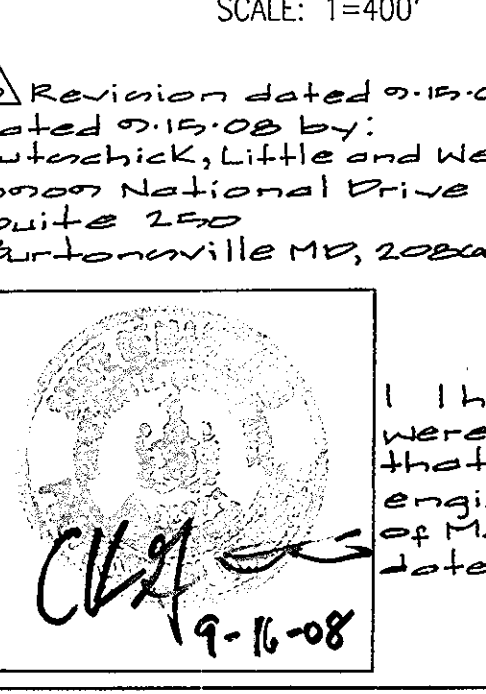 SCALE: 1=400'
Revision dated 9.15.0
ated 9.15.08 by:
utschick, Little and We
National Drive
uite 250
urtonsville MD, 208
I h
were
that
engi
of M
date
9-16-08